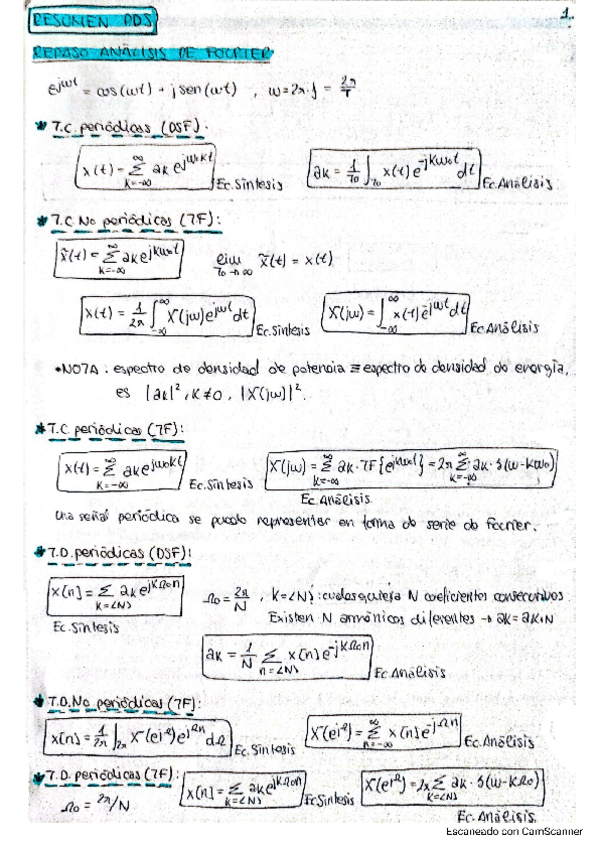 1.
RESUMEN PDS
REPASO ANÁLISIS DE FOURIER
e^{jωt} = cos(ωt) + j sen(ωt) , ω = 2π·f = 2π/T
* T.C. periódicas (DSF):
x(t) = Σ_{k=-∞}^{∞} ak e^{jω₀kt} Ec. Síntesis ak = 1/T₀ ∫_{T₀} x(t) e^{-jkω₀t} dt Ec. Análisis
* T.C. No periódicas (TF):
x̃(t) = Σ_{k=-∞}^{∞} ak e^{jkω₀t} lim_{T₀→∞} x̃(t) = x(t)
x(t) = 1/2π ∫_{-∞}^{∞} X(jω) e^{jωt} dt Ec. Síntesis X(jω) = ∫_{-∞}^{∞} x(t) e^{-jωt} dt Ec. Análisis
•NOTA: espectro de densidad de potencia ≡ espectro de densidad de energía,
es |ak|², k≠0, |X(jω)|².
* T.C. periódicas (TF):
x(t) = Σ_{k=-∞}^{∞} ak e^{jω₀kt} Ec. Síntesis X(jω) = Σ_{k=-∞}^{∞} ak · TF{e^{jkω₀t}} = 2π Σ_{k=-∞}^{∞} ak · δ(ω-kω₀)
Ec. Análisis
Una señal periódica se puede representar en forma de serie de Fourier.
* T.D. periódicas (DSF):
x[n] = Σ_{k=<N>} ak e^{jkΩ₀n} Ω₀ = 2π/N , k=<N>: cualesquiera N coeficientes consecutivos
Ec. Síntesis Existen N armónicos diferentes → ak = ak+N
ak = 1/N Σ_{n=<N>} x[n] e^{-jkΩ₀n} Ec. Análisis
* T.D. No periódicas (TF):
x[n] = 1/2π ∫_{2π} X(e^{jΩ}) e^{jΩn} dΩ Ec. Síntesis X(e^{jΩ}) = Σ_{n=-∞}^{∞} x[n] e^{-jΩn} Ec. Análisis
* T.D. periódicas (TF):
Ω₀ = 2π/N x[n] = Σ_{k=<N>} ak e^{jkΩ₀n} Ec. Síntesis X(e^{jΩ}) = 2π Σ_{k=<N>} ak · δ(ω-kΩ₀)
Ec. Análisis
Escaneado con CamScanner